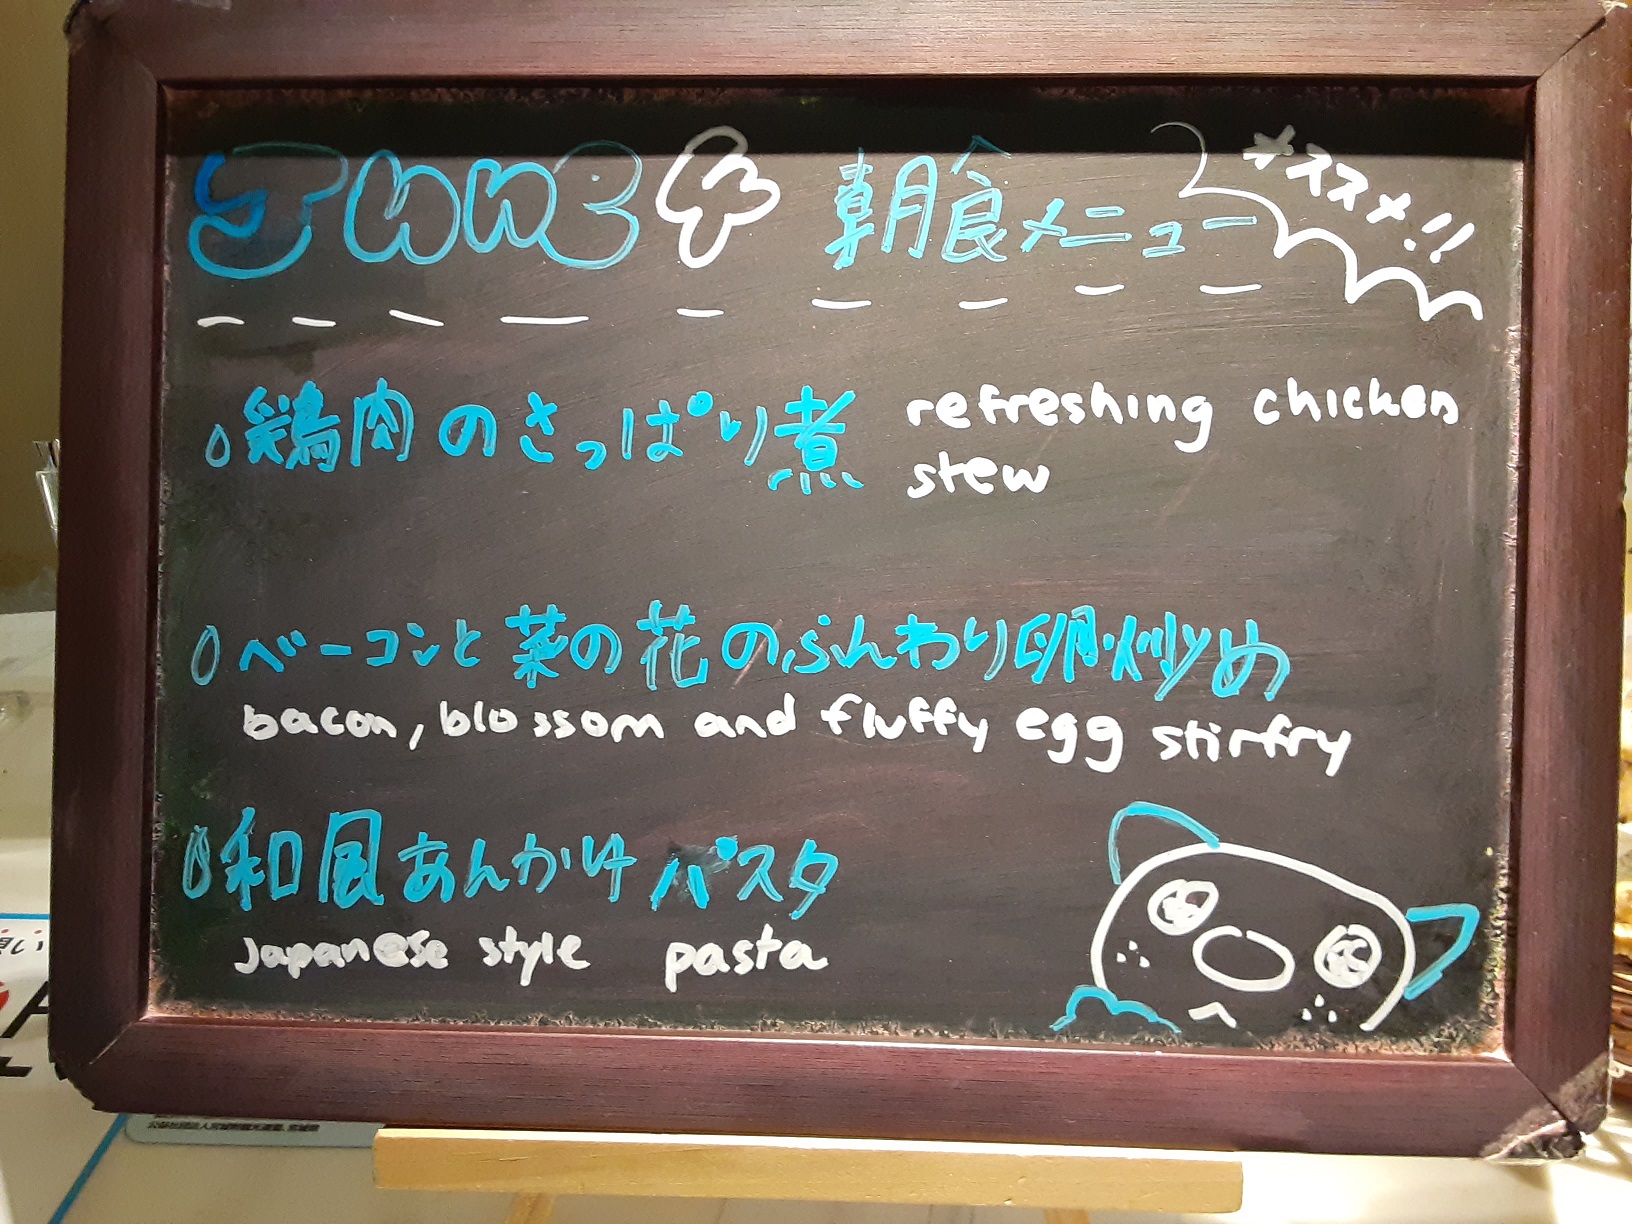 朝食メニュー
オススメ!!
鶏肉のさっぱり煮 refreshing chicken
stew
ベーコンと菜の花のふんわり卵炒め
bacon, blossom and fluffy egg stirfry
和風あんかけパスタ
Japanese style pasta